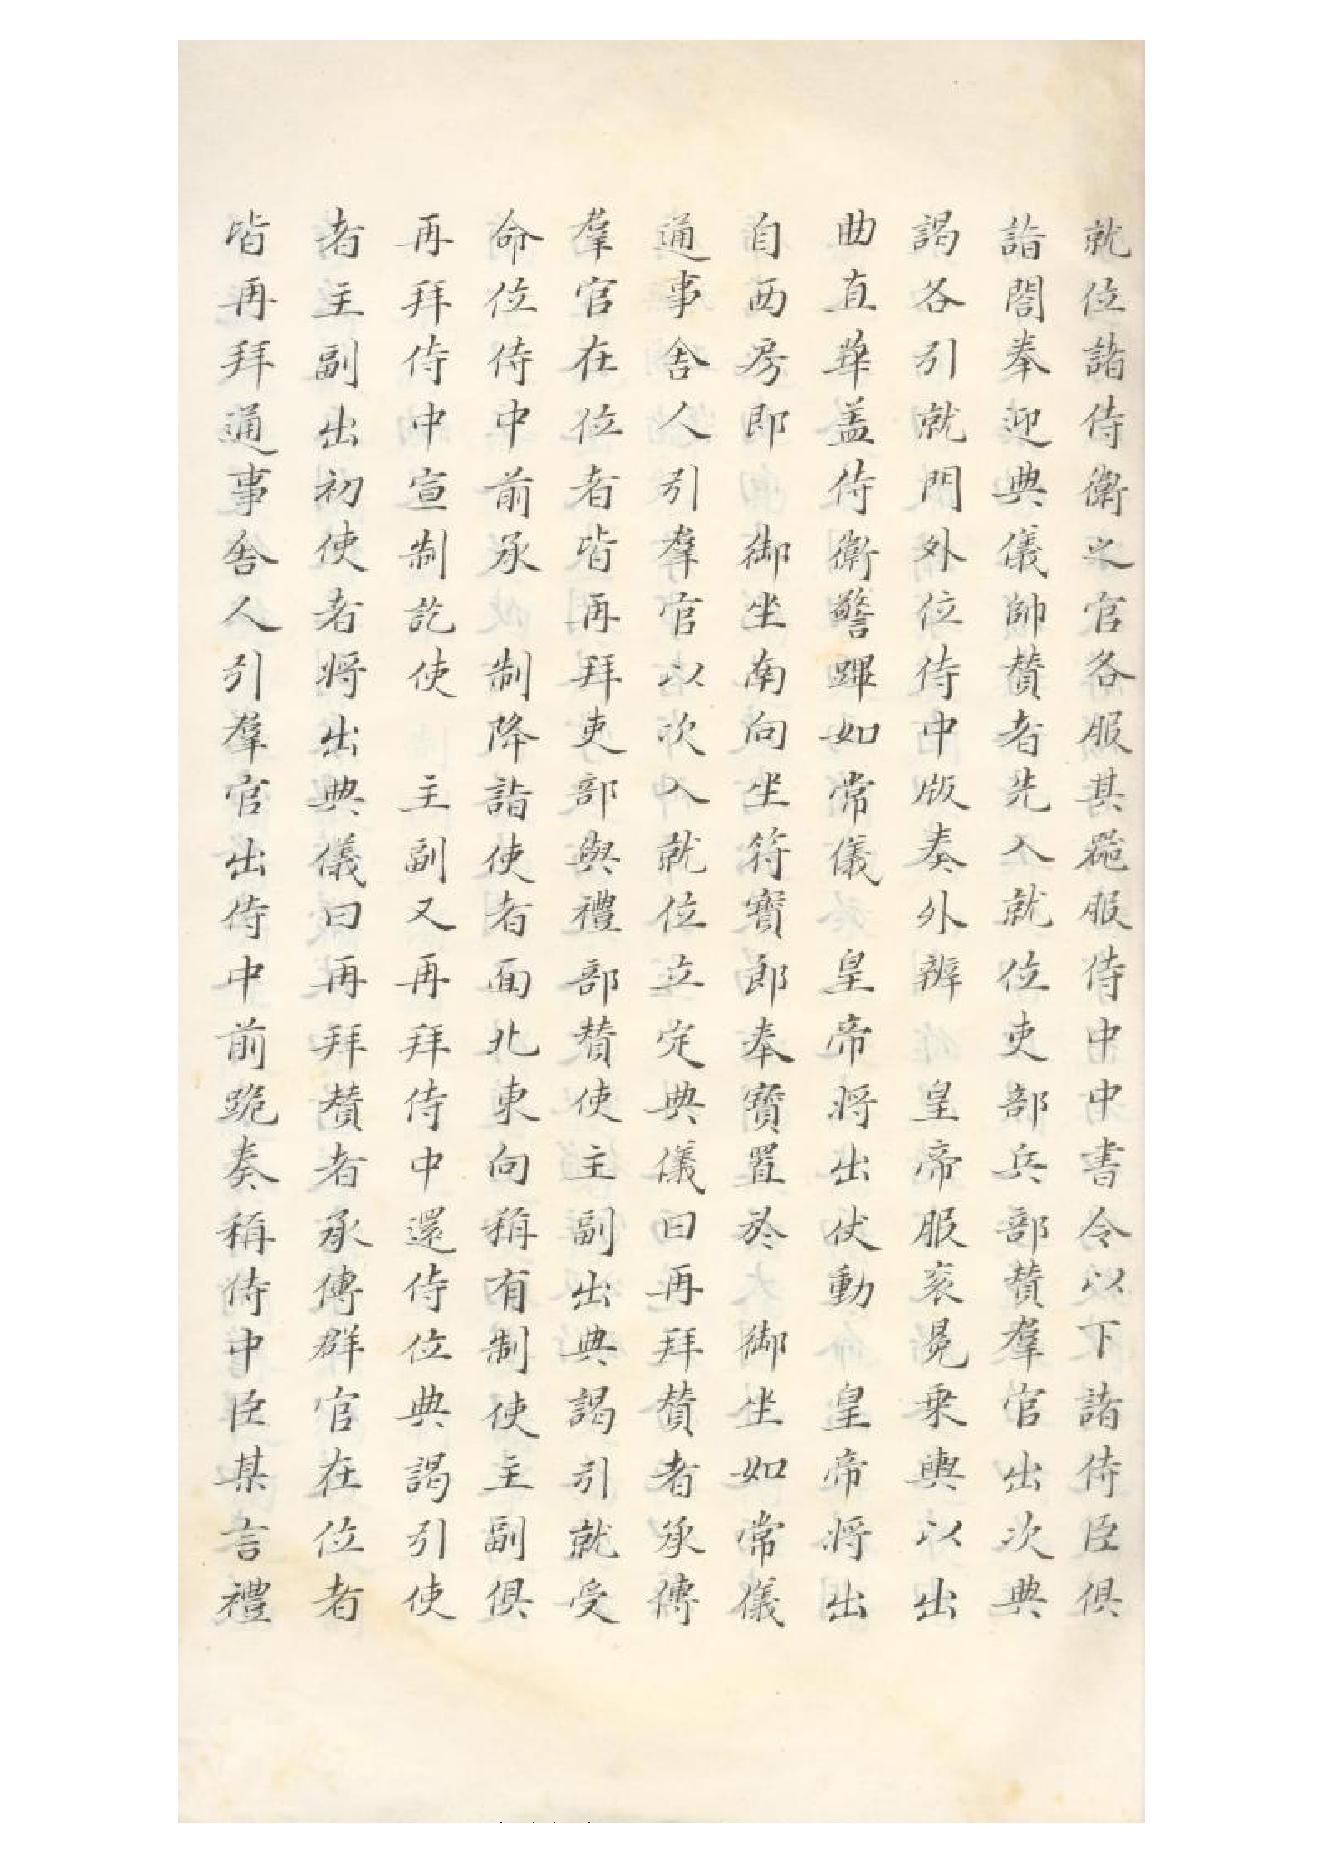 就位諸侍衛之官各服其器服侍中中書令以下諸侍臣俱
詣閤奉迎典儀帥賛者先入就位吏部兵部賛羣官出次典
謁各引就門外位侍中版奏外辦　皇帝服衮冕乗輿以出
曲直華盖侍衛警蹕如常儀　皇帝將出仗動　皇帝將出
自西房即　御坐南向坐符寳郎奉寳置於　御坐如常儀
通事舎人引羣官以次入就位立定典儀曰再拜賛者承傳
羣官在位者皆再拜吏部與禮部賛使主副出典謁引就受
命位侍中前承　制降詣使者面北東向稱有制使主副俱
再拜侍中宣制訖使　主副又再拜侍中還侍位典謁引使
者主副出初使者將出典儀曰再拜賛者承傳群官在位者
皆再拜通事舎人引羣官出侍中前跪奏稱侍中臣某言禮